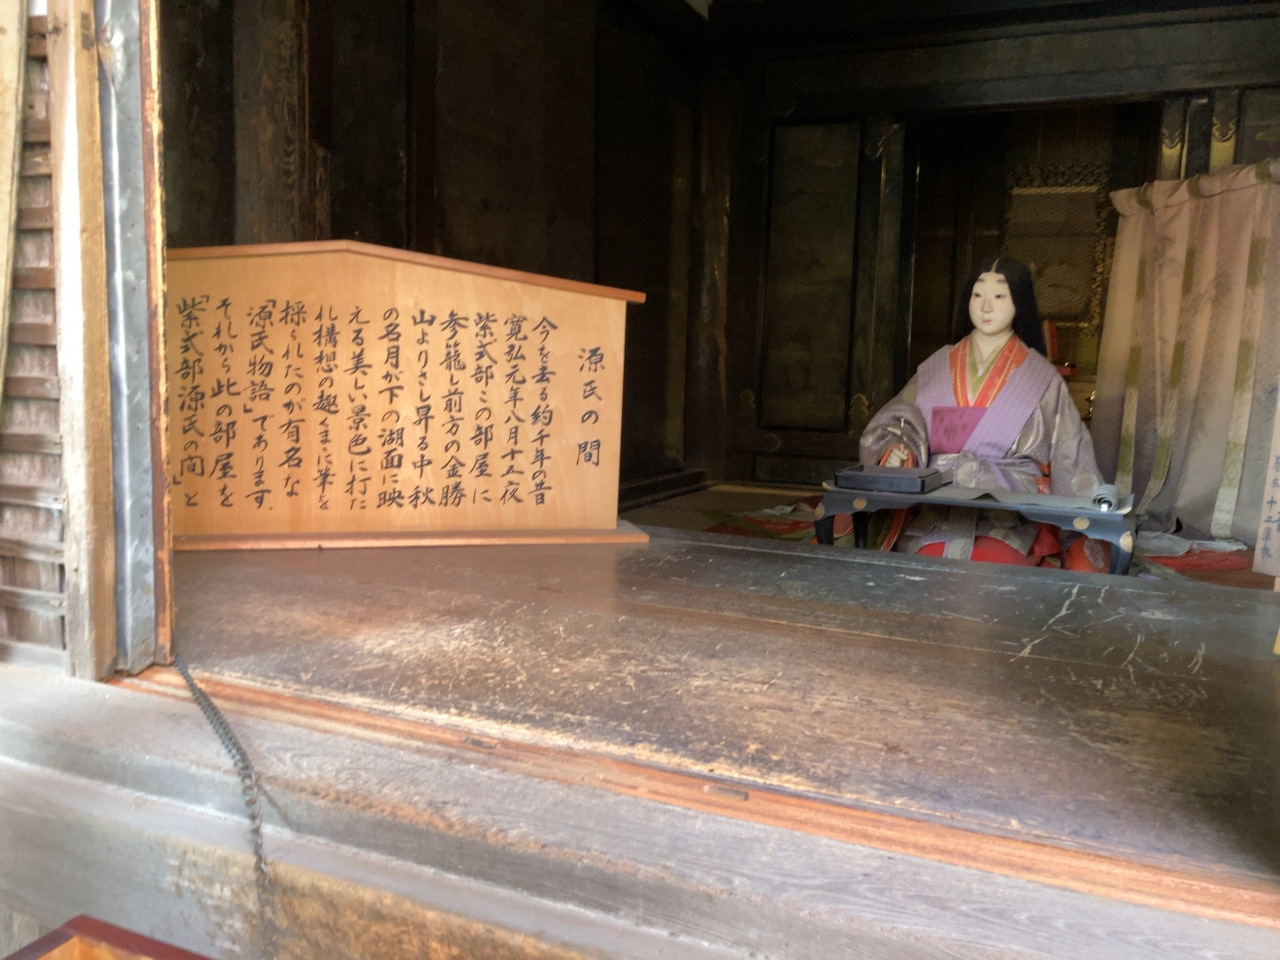 源氏の間
今を去る約千年の昔
寛弘元年八月十五夜
紫式部この部屋に
参籠し前方の金勝
山よりさし昇る中秋
の名月が下の湖面に映
える美しい景色に打た
れ構想の趣くまに筆を
採られたのが有名な
「源氏物語」であります.
それから此の部屋を
「紫式部源氏の間」と
十二単衣